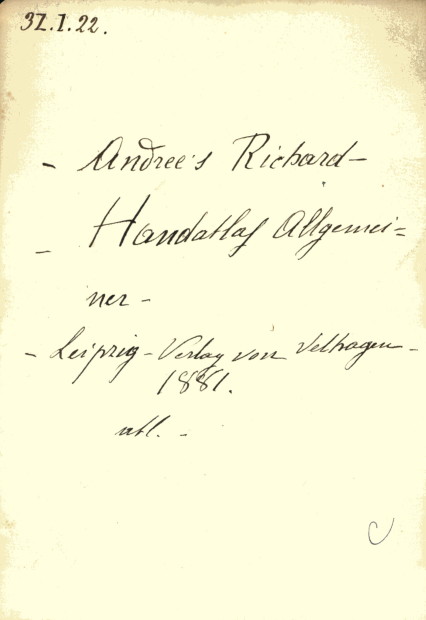 37.1.22.
- Andree's Richard -
- Handatlas Allgemei=
ner -
- Leipzig - Verlag von Velhagen -
1881.
atl. -
C